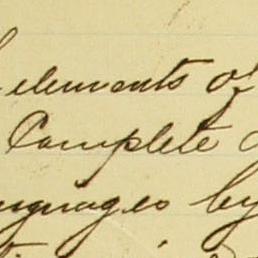 elements of
Complete
nguages by